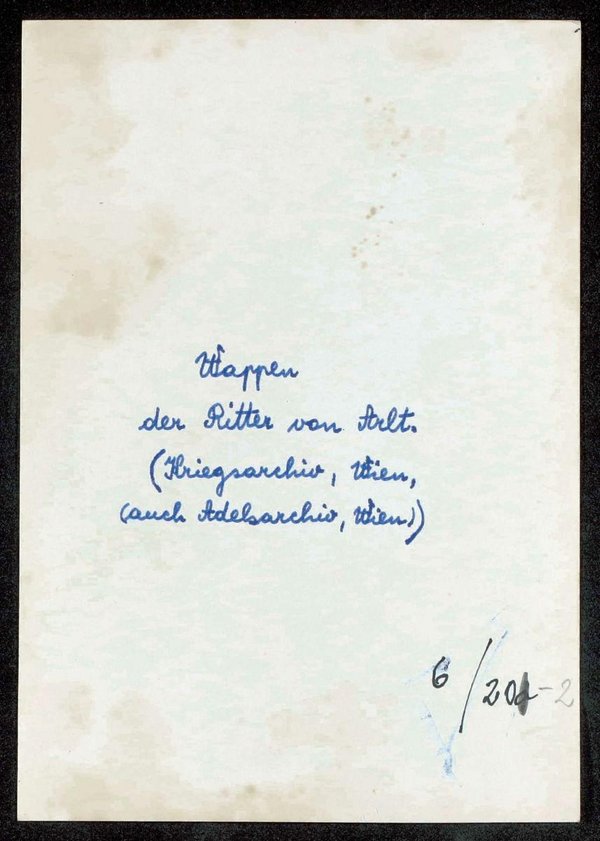 Wappen
der Ritter von Arlt.
(Kriegsarchiv, Wien,
(auch Adelsarchiv, Wien))
6/20 -2